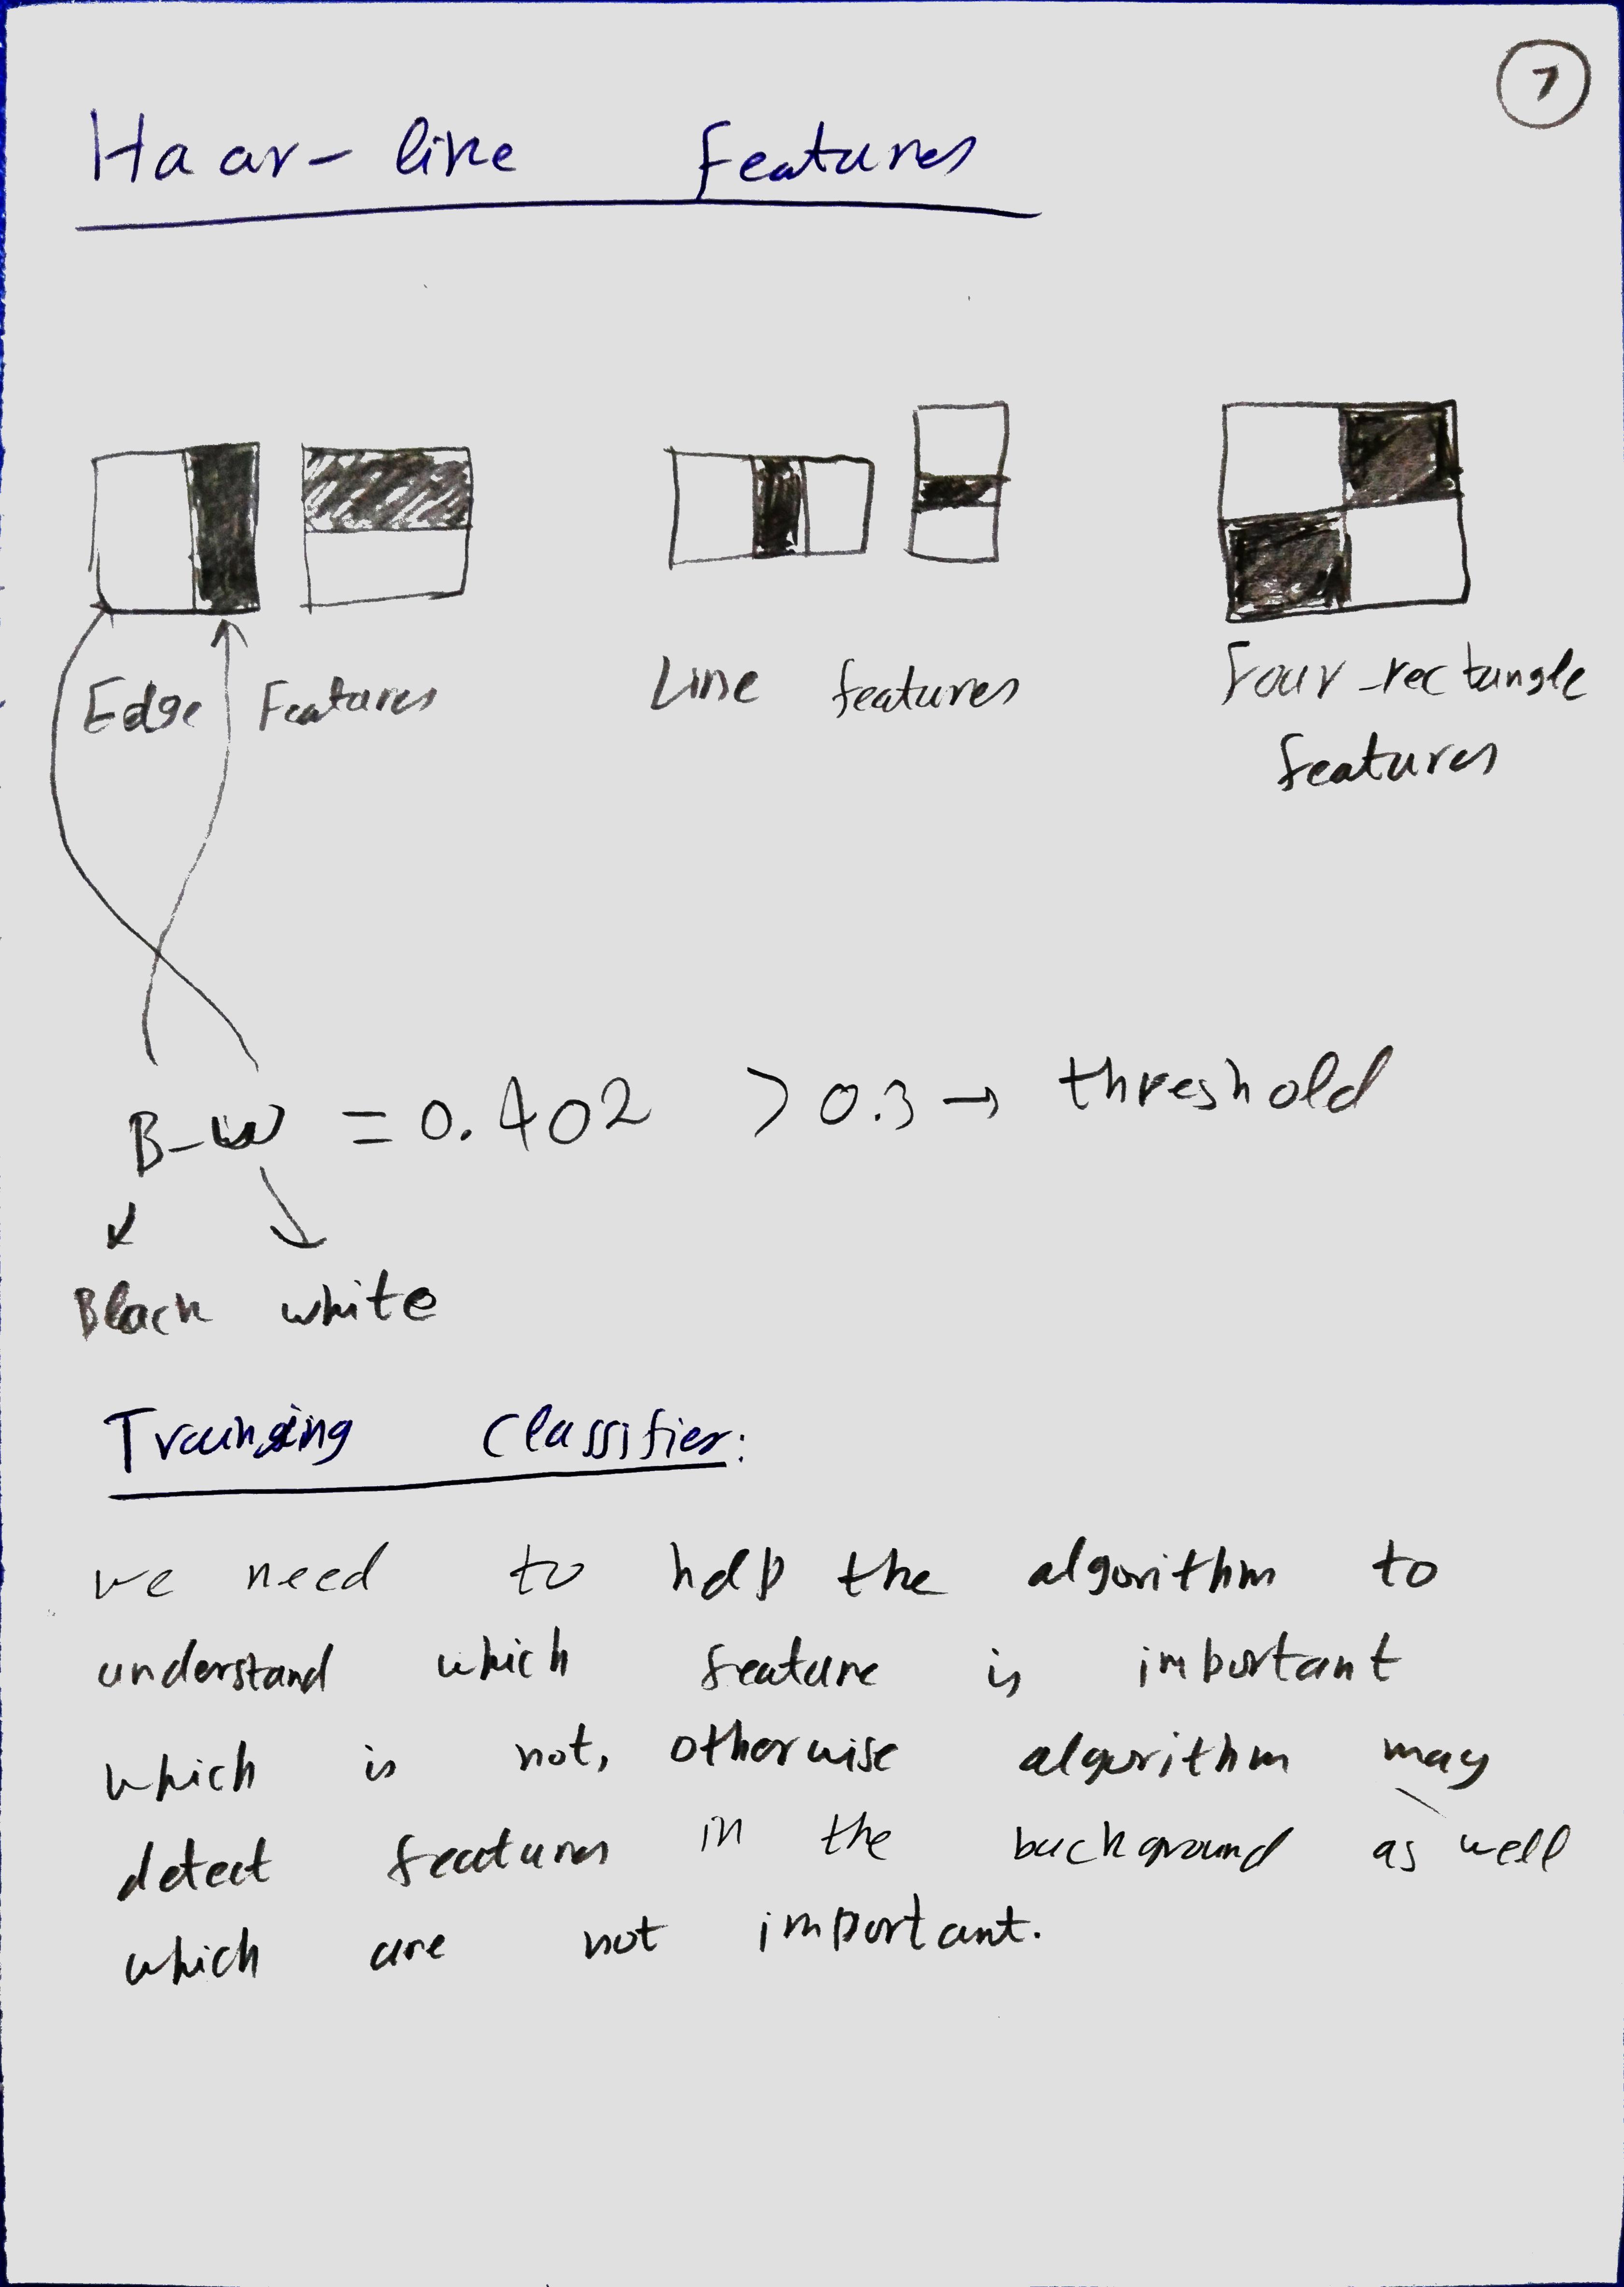 7
Haar-like features
Edge Features
Line features
Four-rectangle
features
B-W = 0.402 > 0.3 → threshold
Black white
Training Classifier:
we need to help the algorithm to
understand which feature is important
which is not, otherwise algorithm may
detect features in the background as well
which are not important.